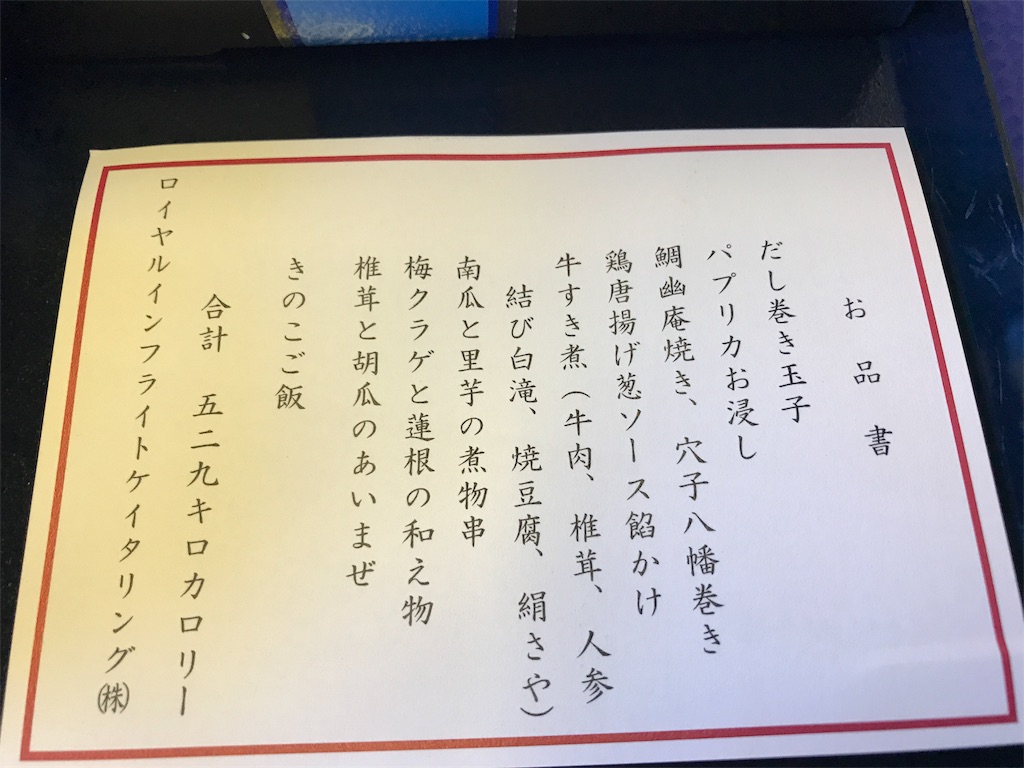 お品書
だし巻き玉子
パプリカお浸し
鯛幽庵焼き、穴子八幡巻き
鶏唐揚げ葱ソース餡かけ
牛すき煮（牛肉、椎茸、人参
結び白滝、焼豆腐、絹さや）
南瓜と里芋の煮物串
梅クラゲと蓮根の和え物
椎茸と胡瓜のあいまぜ
きのこご飯
合計　五二九キロカロリー
ロイヤルインフライトケイタリング㈱